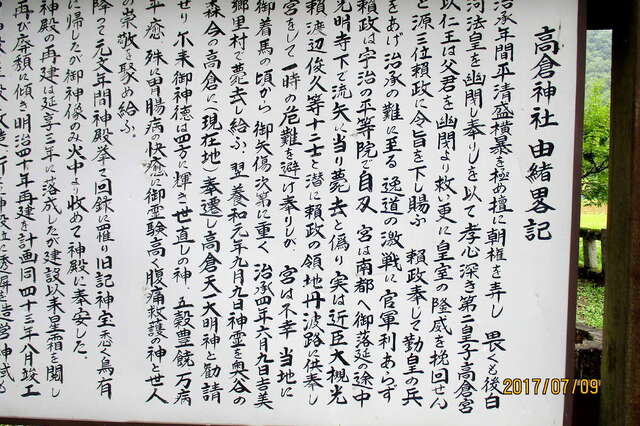 高倉神社由緒畧記
治承年間平清盛横暴を極め擅に朝権を弄し 畏くも後白
河法皇を幽閉し奉りしを以て孝心深き第二皇子高倉宮
以仁王は父君を幽閉より救い更に皇室の隆威を挽回せん
と源三位頼政に令旨を下し賜ふ 頼政奉して勤皇の兵
をあげ治承の難に至る 逸道の激戦に官軍利あらず
頼政は宇治の平等院で自刃 宮は南都へ御落延の途中
光明寺下で流矢に当り薨去と偽り実は近臣大槻光
頼渡辺俊久等十二士と潜に頼政の領地丹波路に供奉し
宮をして一時の危難を避け奉りしが 宮は不幸 当地に
御着馬の頃から御矢傷次第に重く 治承四年六月九日吉美
郷里村で薨去し給ふ 翌養和元年九月九日神霊を奥谷の
森今の高倉に(現在地)奉遷し高倉天一大明神と勧請
せり 尓来御神徳は四方に輝き世直しの神、五穀豊饒、万病
平癒 殊に胃腸病の快癒に御霊験高く腹痛救護の神と世人
の崇敬を聚め給ふ
降って元文年間神殿挙て回録に罹り旧記神宝悉く烏有
に帰したが御神像のみ火中より收めて神殿に奉安した。
神殿の再建は延享三年に落成したが建設以来星霜を閲し
再び弃頽に傾き明治四十年再建を計画同四十三年八月竣工
2017/07/09